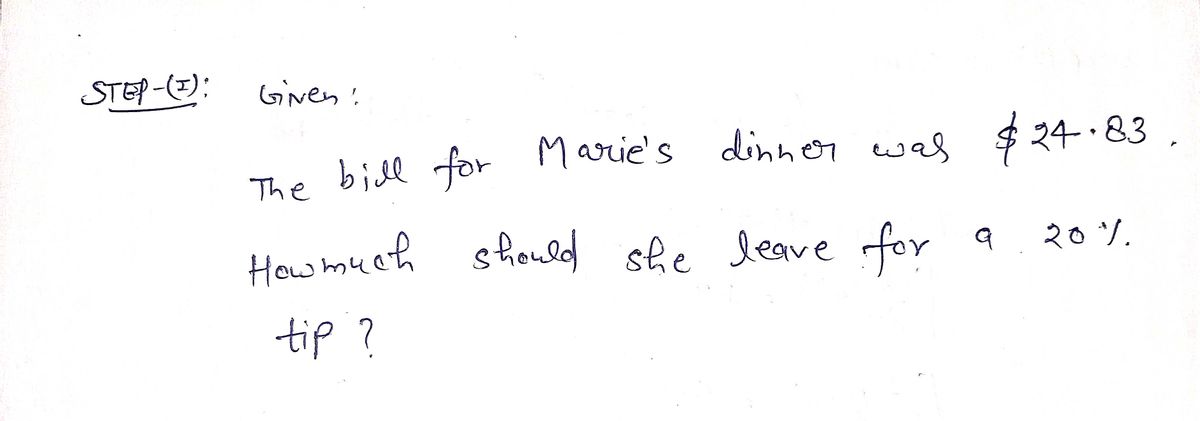 STEP-(I): Given:
The bill for Marie's dinner was $24.83.
Howmuch should she leave for a 20%
tip?